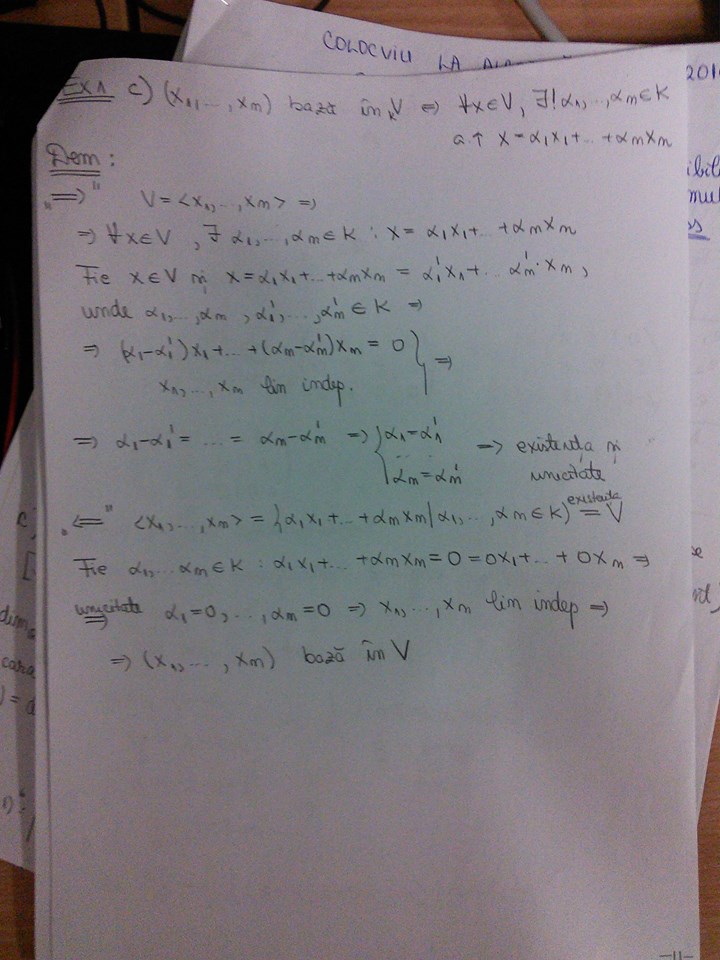 COLOCVIU LA
201
Ex 1 c) (x₁,..., xₘ) bază în V ⇔ ∀x∈V, ∃! α₁,..., αₘ∈K
a.î x = α₁x₁+... +αₘxₘ
Dem:
„⇒" V = <x₁,..., xₘ> ⇒
⇒ ∀x∈V, ∃ α₁,..., αₘ∈K : x = α₁x₁+... +αₘxₘ
Fie x∈V și x=α₁x₁+...+αₘxₘ = α₁'x₁+... αₘ'·xₘ,
unde α₁,..., αₘ, α₁',..., αₘ' ∈ K ⇒
⇒ (α₁-α₁')x₁+... +(αₘ-αₘ')xₘ = 0 } ⇒
x₁,..., xₘ lin indep.
⇒ α₁-α₁' = .... = αₘ-αₘ' ⇒ { α₁=α₁' ⇒ existența și
... αₘ=αₘ' unicitate
„⇐" <x₁,..., xₘ> = {α₁x₁+... +αₘxₘ | α₁,..., αₘ∈K} existența = V
Fie α₁,...αₘ∈K : α₁x₁+... +αₘxₘ=0=0x₁+... + 0xₘ ⇒
unicitate ⇒ α₁=0,..., αₘ=0 ⇒ x₁,..., xₘ lin indep ⇒
⇒ (x₁,..., xₘ) bază în V
ibil
mul
dim
cara
-11-